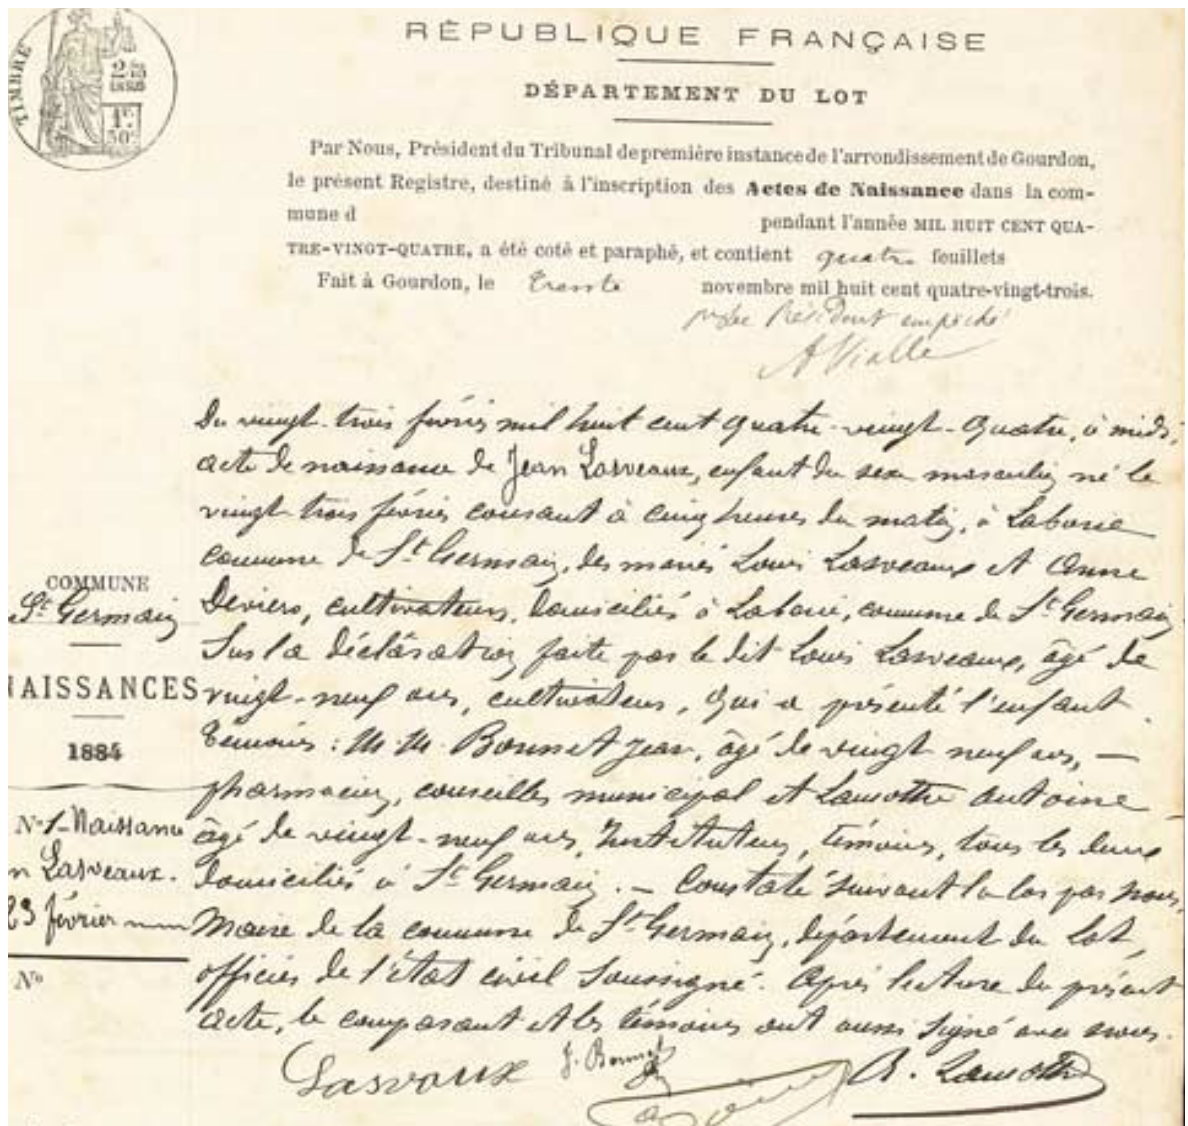 TIMBRE
2
1F
50c
RÉPUBLIQUE FRANÇAISE
DÉPARTEMENT DU LOT
Par Nous, Président du Tribunal de première instance de l'arrondissement de Gourdon,
le présent Registre, destiné à l'inscription des Actes de Naissance dans la com-
mune d pendant l'année MIL HUIT CENT QUA-
TRE-VINGT-QUATRE, a été coté et paraphé, et contient quatre feuillets
Fait à Gourdon, le trente novembre mil huit cent quatre-vingt-trois.
Président empêché
A Vialle
Du vingt-trois février mil huit cent quatre-vingt-quatre, à midi,
acte de naissance de Jean Lasveaux, enfant du sexe masculin né le
vingt trois février courant à cinq heures du matin, à Laborie
commune de St Germain, des mariés Louis Lasveaux et Anne
Deviers, cultivateurs, domiciliés à Laborie, commune de St Germain
Sur la déclaration faite par le dit Louis Lasveaux, âgé de
vingt-neuf ans, cultivateur, qui a présenté l'enfant.
Témoins : M.M. Bonnet Jean, âgé de vingt neuf ans, —
pharmacien, conseiller municipal et Lamothe Antoine
âgé de vingt-neuf ans, Instituteur, témoins, tous les deux
domiciliés à St Germain. — Constaté suivant la loi par nous,
Maire de la commune de St Germain, département du Lot,
officier de l'état civil soussigné. Après lecture du présent
acte, le comparant et les témoins ont aussi signé avec nous.
COMMUNE
St Germain
NAISSANCES
1884
No 1 - Naissance
n Lasveaux.
23 février
No
Lasvaux J. Bonnet A. Lamothe